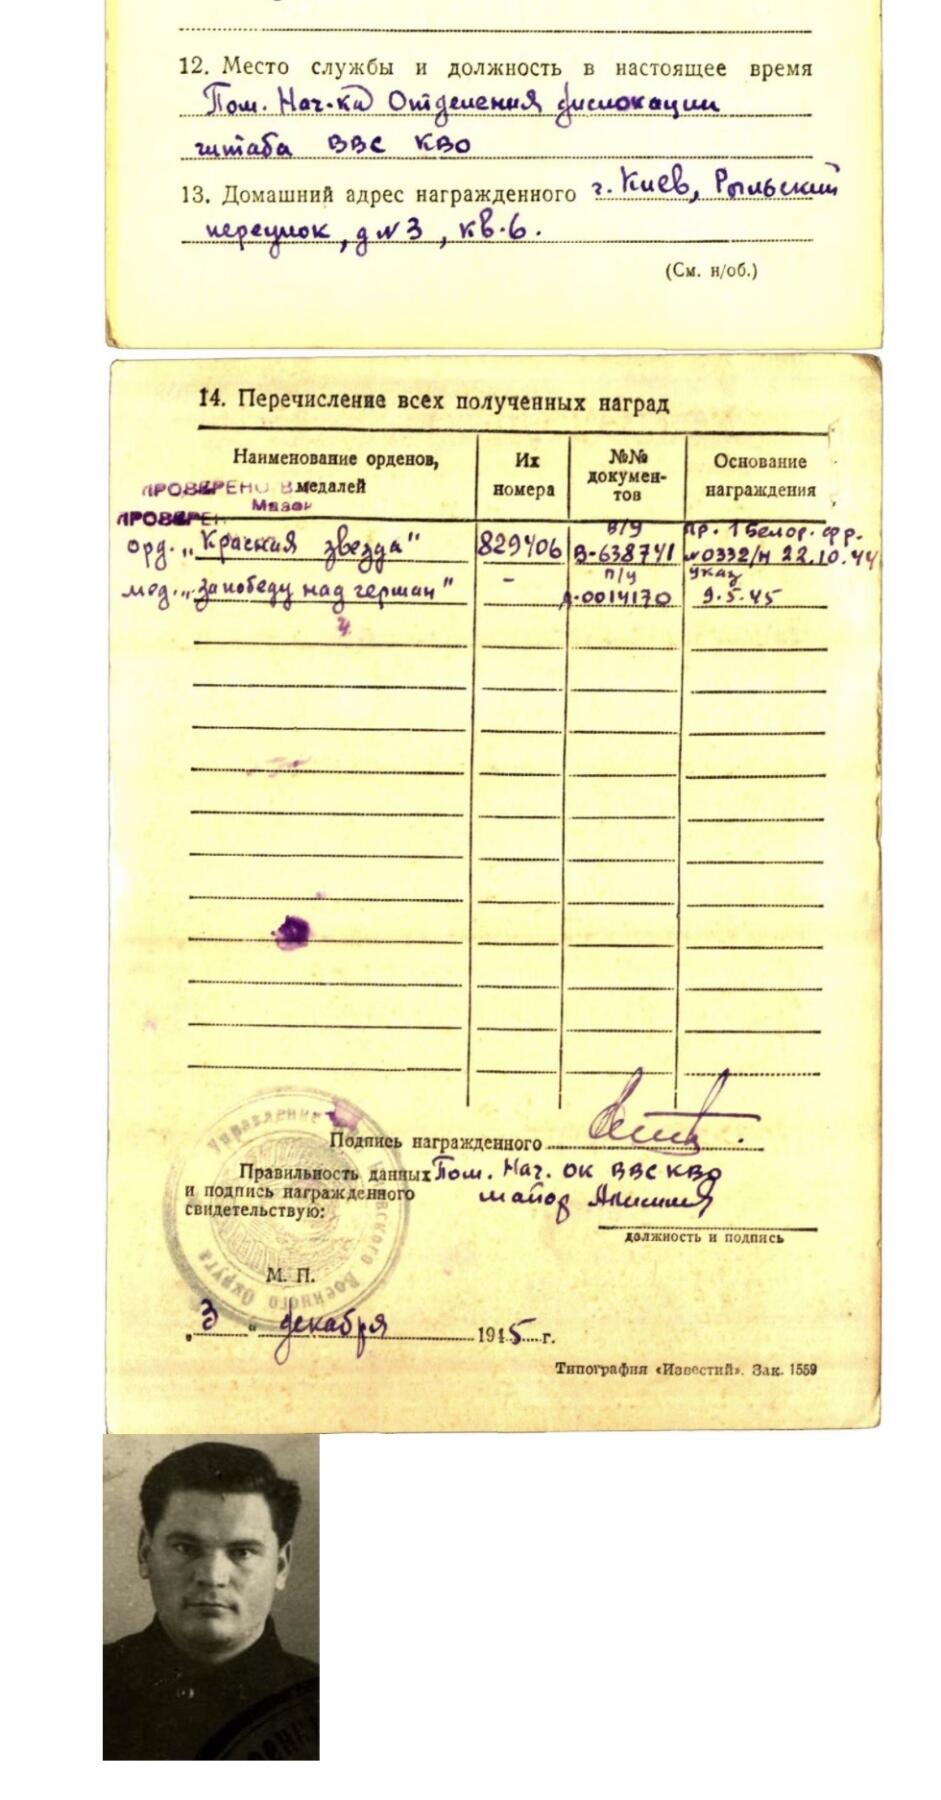 12. Место службы и должность в настоящее время
Пом. Нач-ка Отделения дислокации
штаба ВВС КВО
13. Домашний адрес награжденного г. Киев, Рыльский
переулок, д № 3, кв. 6.
(См. н/об.)
14. Перечисление всех полученных наград
Наименование орденов, медалей
Их номера
№№ докумен-тов
Основание награждения
ПРОВЕРЕНО В
ПРОВЕРЕН
орд. „Красная звезда" 829406 В/У В-638741 Пр. 1 Белор. фр. №0332/Н 22.10.44
мед. „за победу над герман" - П/У А-0014170 Указ 9.5.45
Подпись награжденного
Правильность данных Пом. Нач. ОК ВВС КВО
и подпись награжденного майор
свидетельствую:
должность и подпись
Управление
Военного Округа
М. П.
„3" декабря 1945 г.
Типография «Известий». Зак. 1559